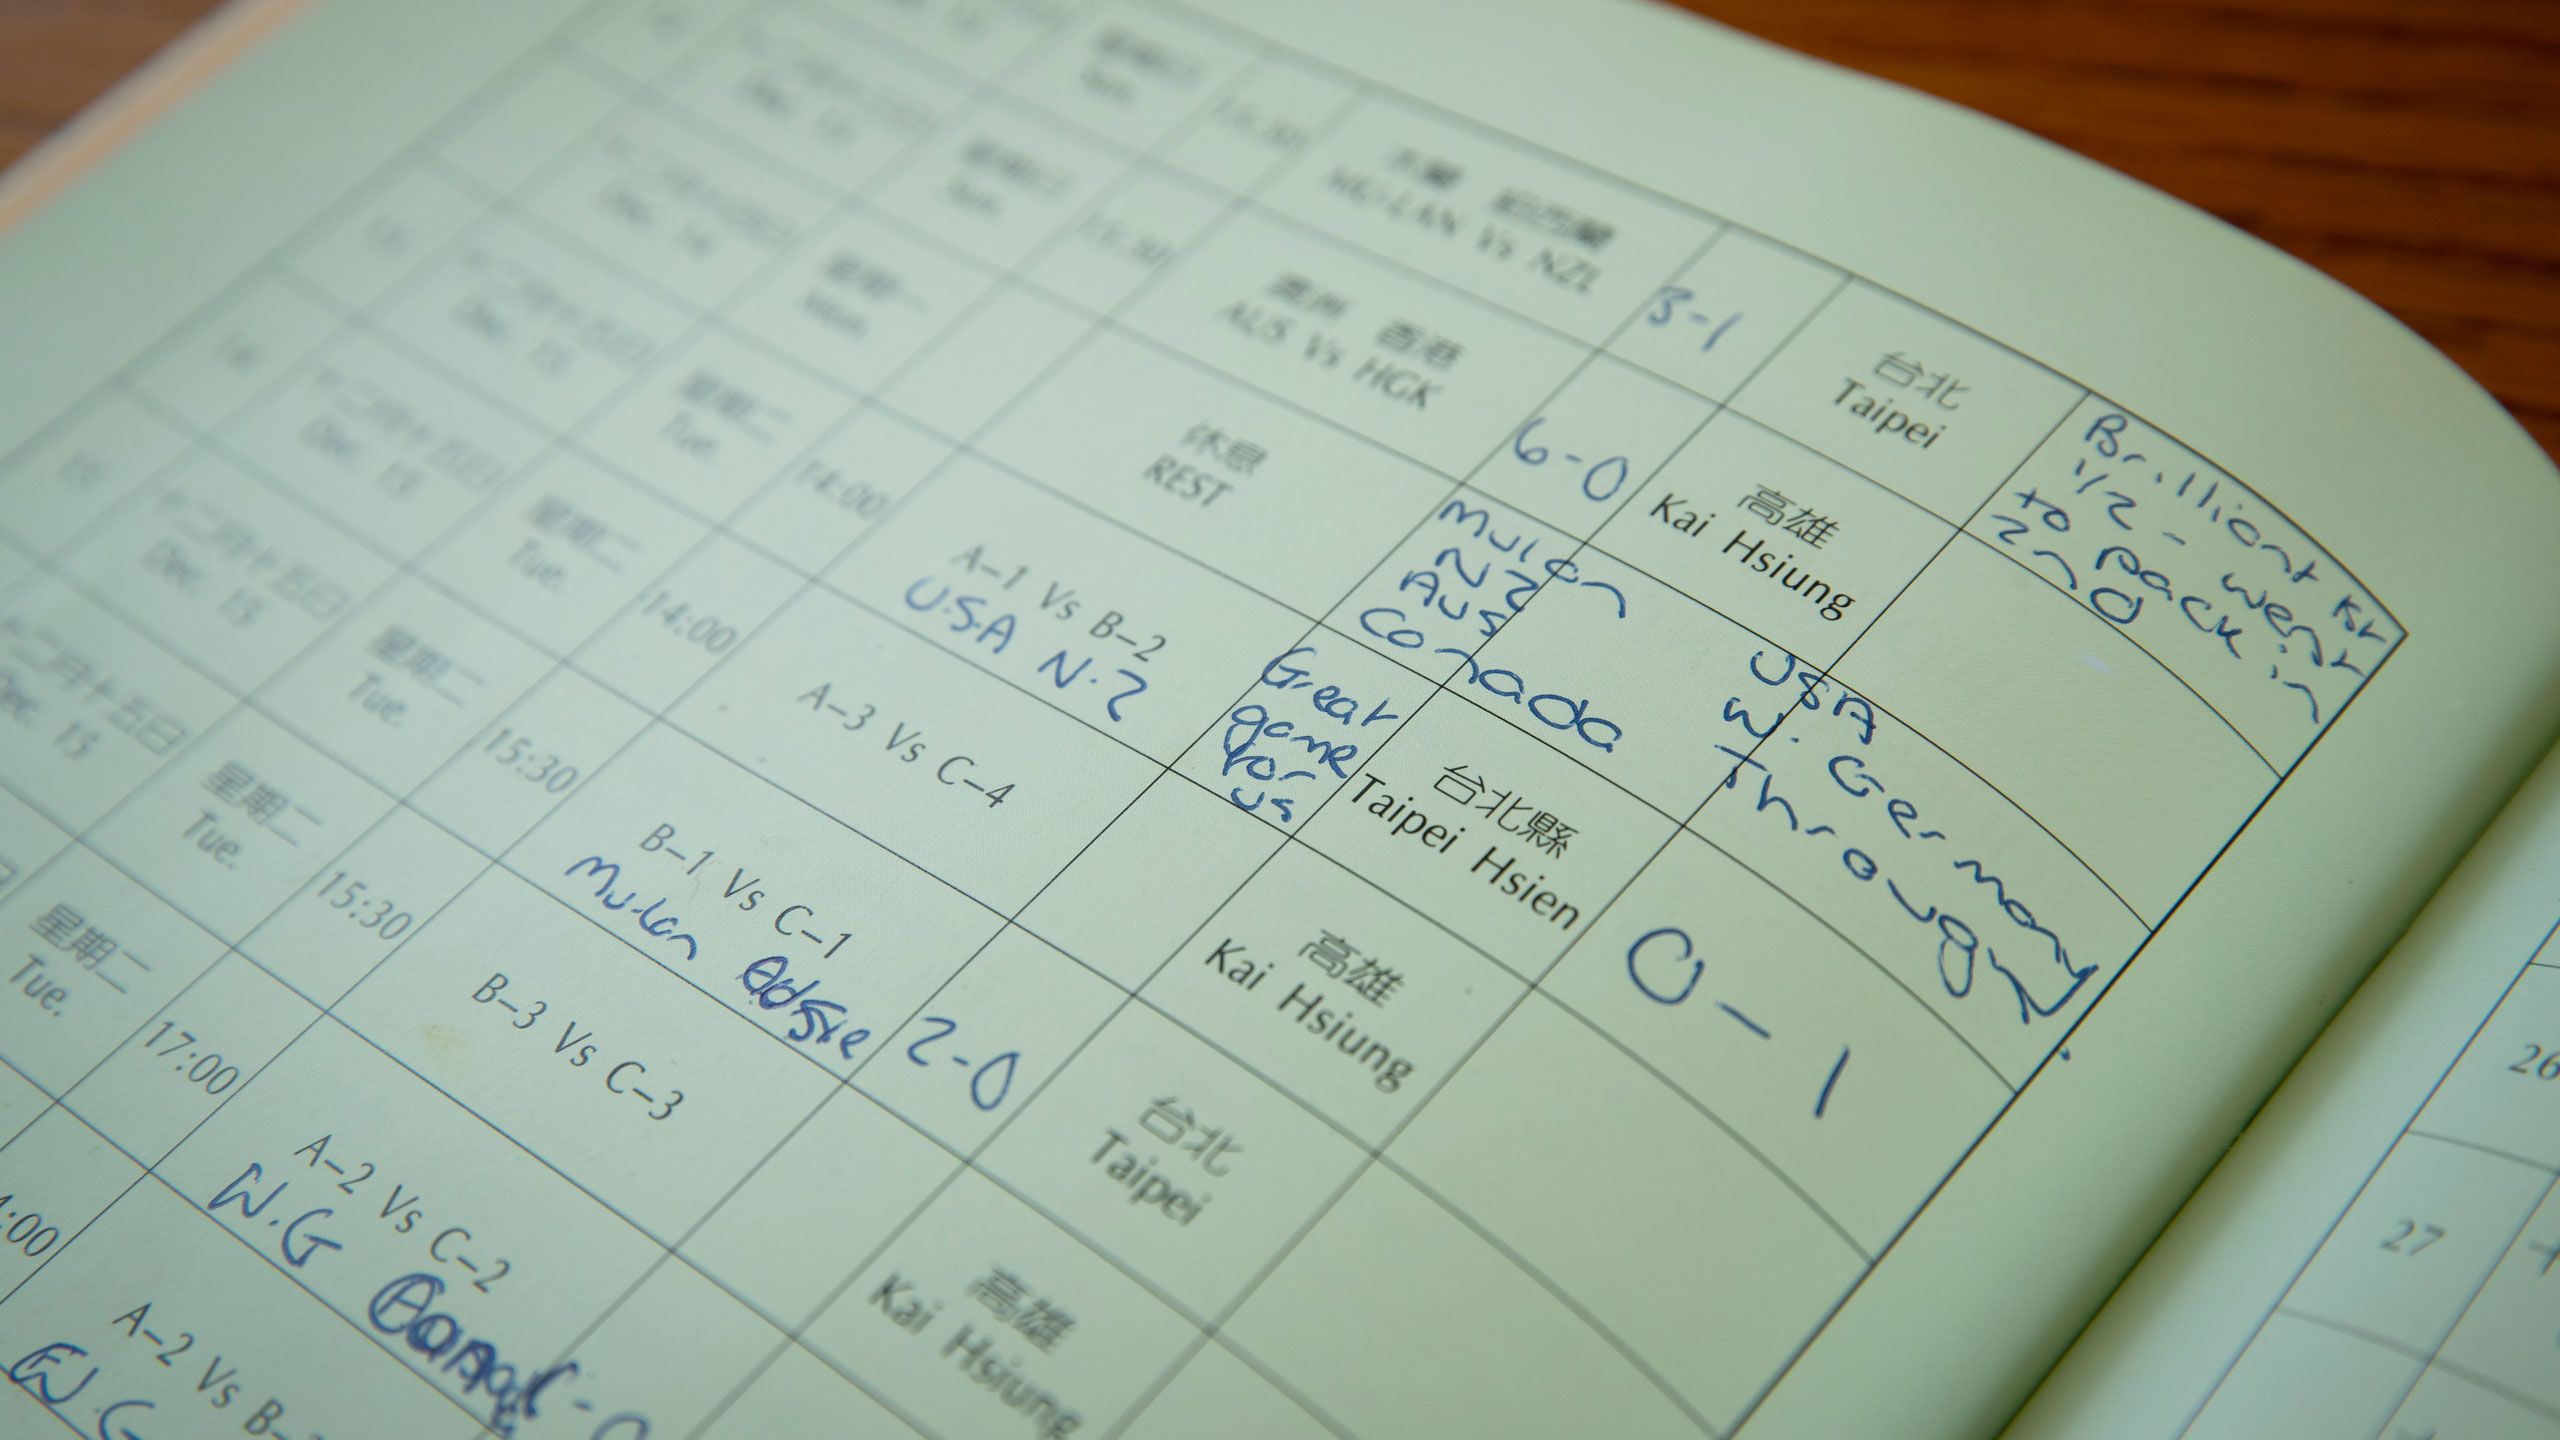 星期日
Sun.
木蘭 紐西蘭
MU-LAN Vs NZL
3-1
台北
Taipei
Brilliant 1st
1/2 - went
to pack in
2nd
Dec. 14
星期日
Sun.
15:30
澳洲 香港
AUS Vs HGK
6-0
高雄
Kai Hsiung
Dec. 14
星期一
Mon.
休息
REST
Mulan
NZ
Aus
Canada
USA
W. Germany
Through
十二月十五日
Dec. 15
星期二
Tue.
14:00
A-1 Vs B-2
U.S.A N.Z
Great
game
for
us
台北縣
Taipei Hsien
0-1
十二月十五日
Dec. 15
星期二
Tue.
14:00
A-3 Vs C-4
高雄
Kai Hsiung
十二月十五日
Dec. 15
星期二
Tue.
15:30
B-1 Vs C-1
Mu-lan Aussie
2-0
台北
Taipei
十二月十五日
Dec. 15
星期二
Tue.
15:30
B-3 Vs C-3
高雄
Kai Hsiung
星期二
Tue.
17:00
A-2 Vs C-2
W.G
:00
A-2 Vs B-
W.G
26
27